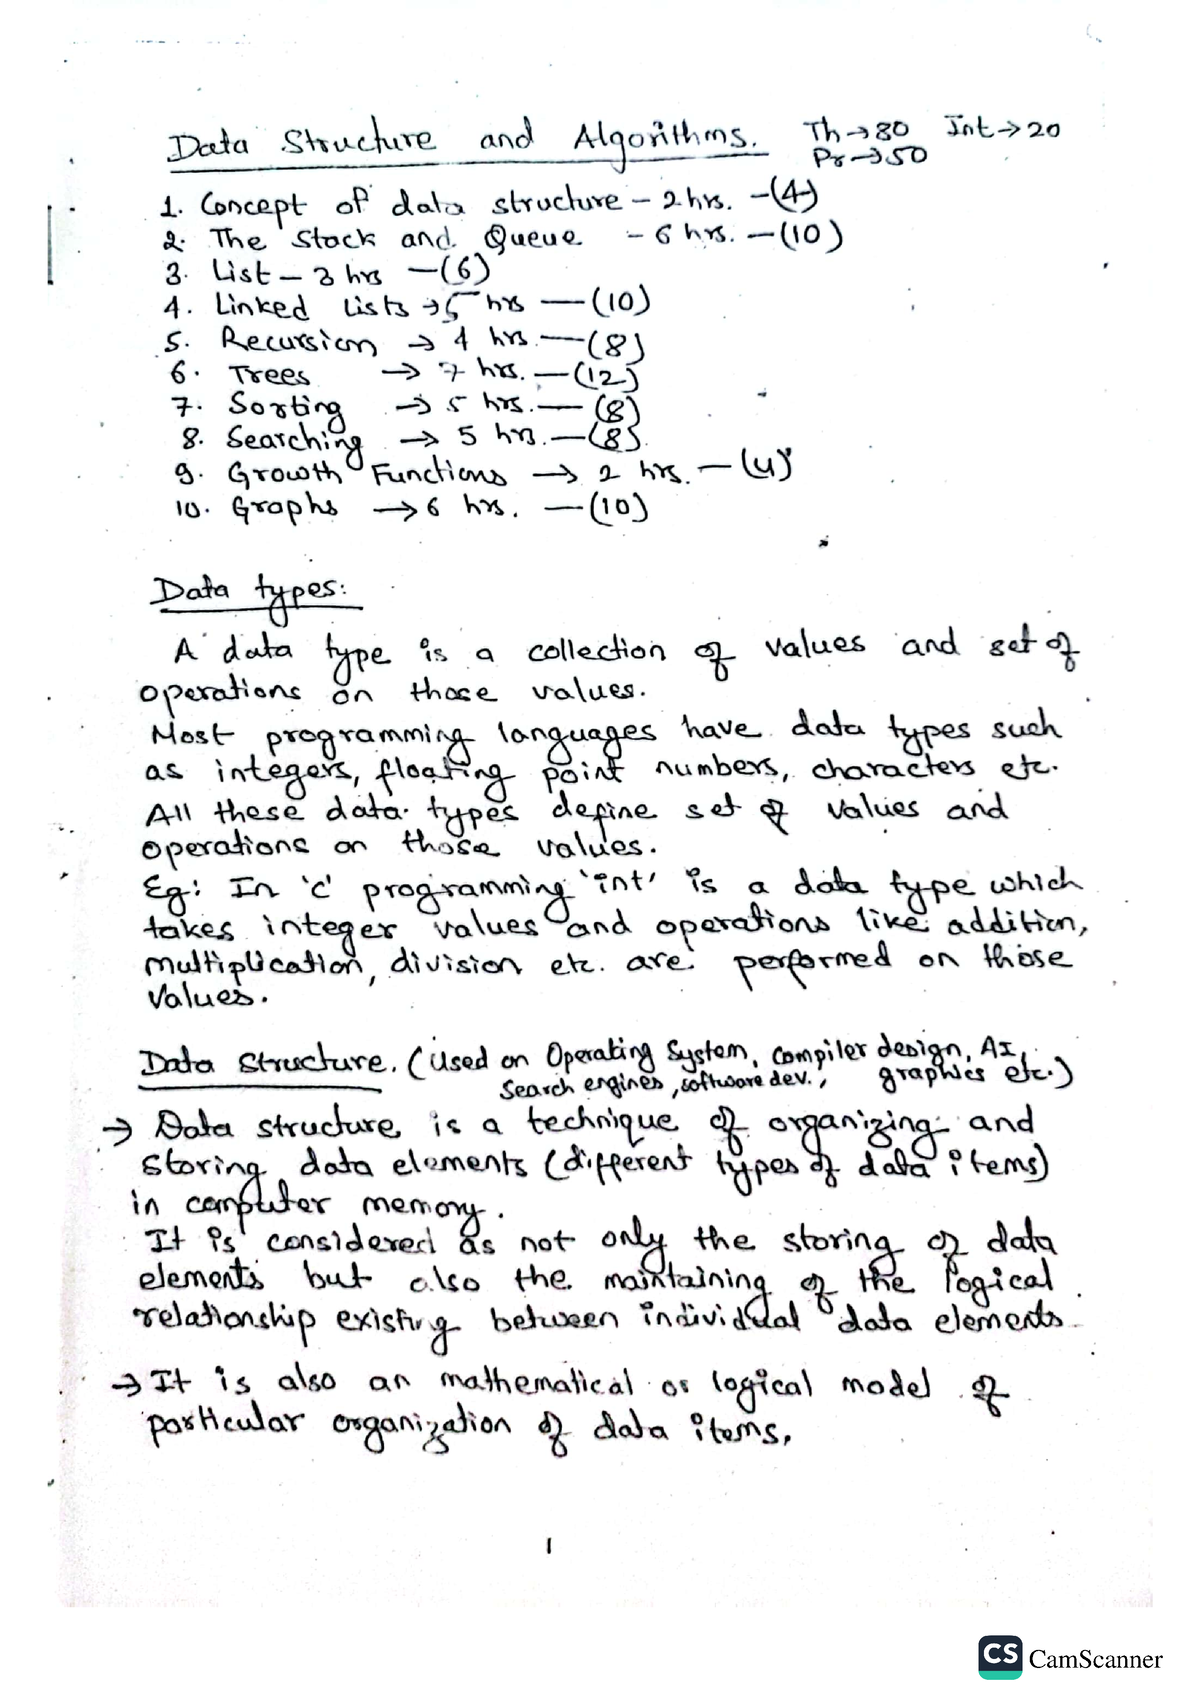 Data Structure and Algorithms. Th→80 Int→20
Pr→50
1. Concept of data structure - 2 hrs. -(4)
2. The Stack and Queue - 6 hrs. -(10)
3. List - 3 hrs -(6)
4. Linked Lists →5 hrs -(10)
5. Recursion → 4 hrs. -(8)
6. Trees → 7 hrs. -(12)
7. Sorting → 5 hrs. - (8)
8. Searching → 5 hrs. -(8)
9. Growth Functions → 2 hrs. - (4)
10. Graphs → 6 hrs. -(10)
Data types:
A data type is a collection of values and set of
operations on those values.
Most programming languages have data types such
as integers, floating point numbers, characters etc.
All these data types define set of values and
operations on those values.
Eg: In 'C' programming 'int' is a data type which
takes integer values and operations like addition,
multiplication, division etc. are performed on those
values.
Data Structure. (Used on Operating System, Compiler design, AI,
Search engines, software dev., graphics etc.)
→ Data structure is a technique of organizing and
storing data elements (different types of data items)
in computer memory.
It is considered as not only the storing of data
elements but also the maintaining of the logical
relationship existing between individual data elements.
→ It is also an mathematical or logical model of
particular organization of data items.
1
CS CamScanner